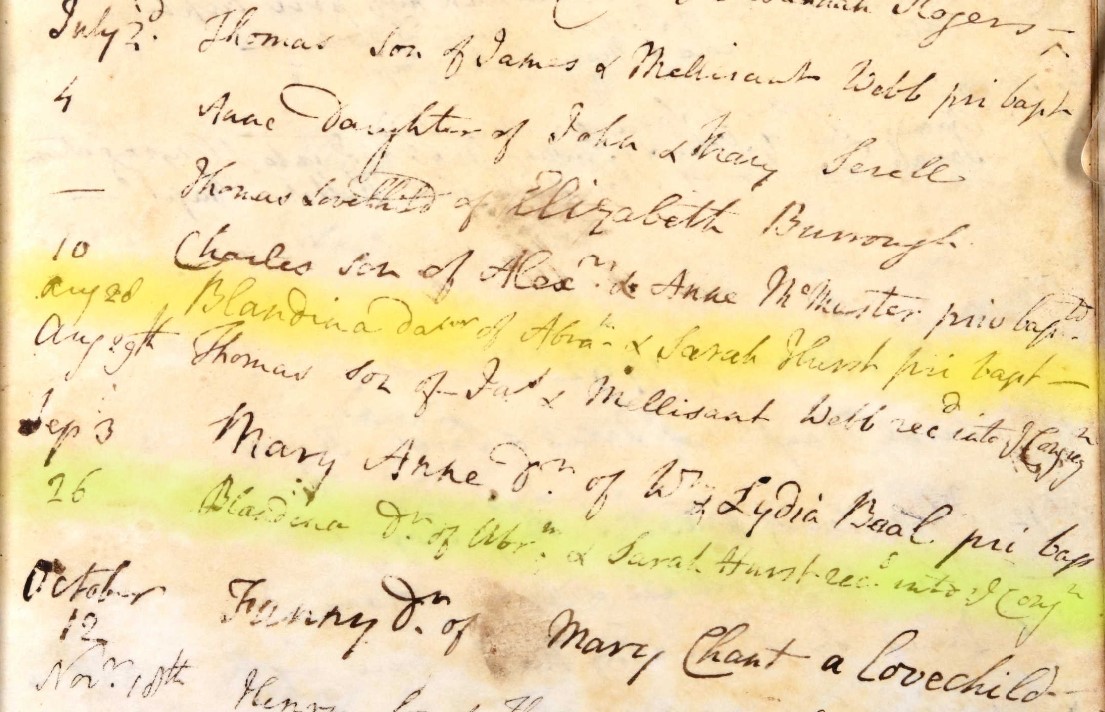 Rogers –
July 2d. Thomas Son of James & Mellisant Webb pri bapt
4 Anne Daughter of John & Mary Serell
— Thomas Lovechild of Elizabeth Burrough
10 Charles Son of Alexr. & Anne McMaster priv bapd.
Aug 28 Blandina dawr of Abram & Sarah Hurst pri bapt —
Aug 29th Thomas Son of Jas & Mellisant Webb recd into ye Congn
Sep 3 Mary Anne Dr. of Wm & Lydia Baal pri bap
26 Blandina Dr. of Abrm. & Sarah Hurst recd into ye Congn
October
12 Fanny Dr. of Mary Chant a Lovechild –
Novr. 18th Henry Son of